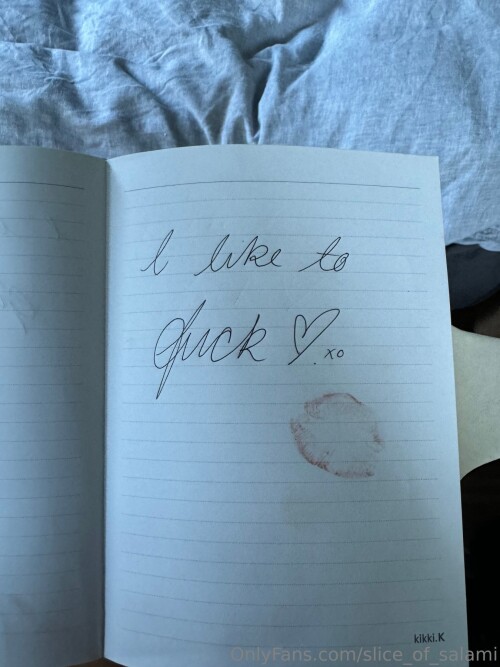 I like to
fuck ♡. xo
kikki.K
OnlyFans.com/slice_of_salami